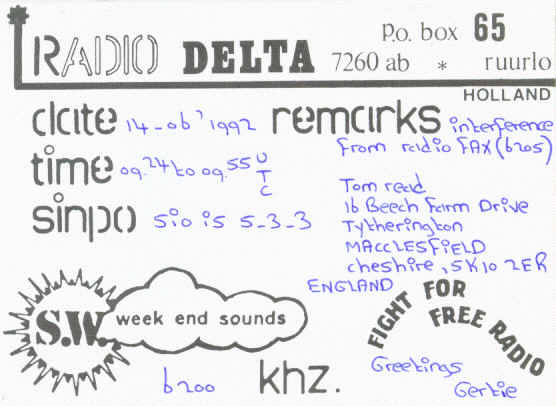 RADIO DELTA
p.o. box 65
7260 ab * ruurlo
HOLLAND
date 14-06'1992
remarks interference
from radio FAX (6205)
time 09.24 to 09.55 UTC
sinpo sio is 5-3-3
Tom read
16 Beech Farm Drive
Tytherington
MACCLESFIELD
cheshire, SK10 2ER
ENGLAND
S.W. week end sounds
6200 khz.
FIGHT FOR
FREE RADIO
Greetings
Gertie